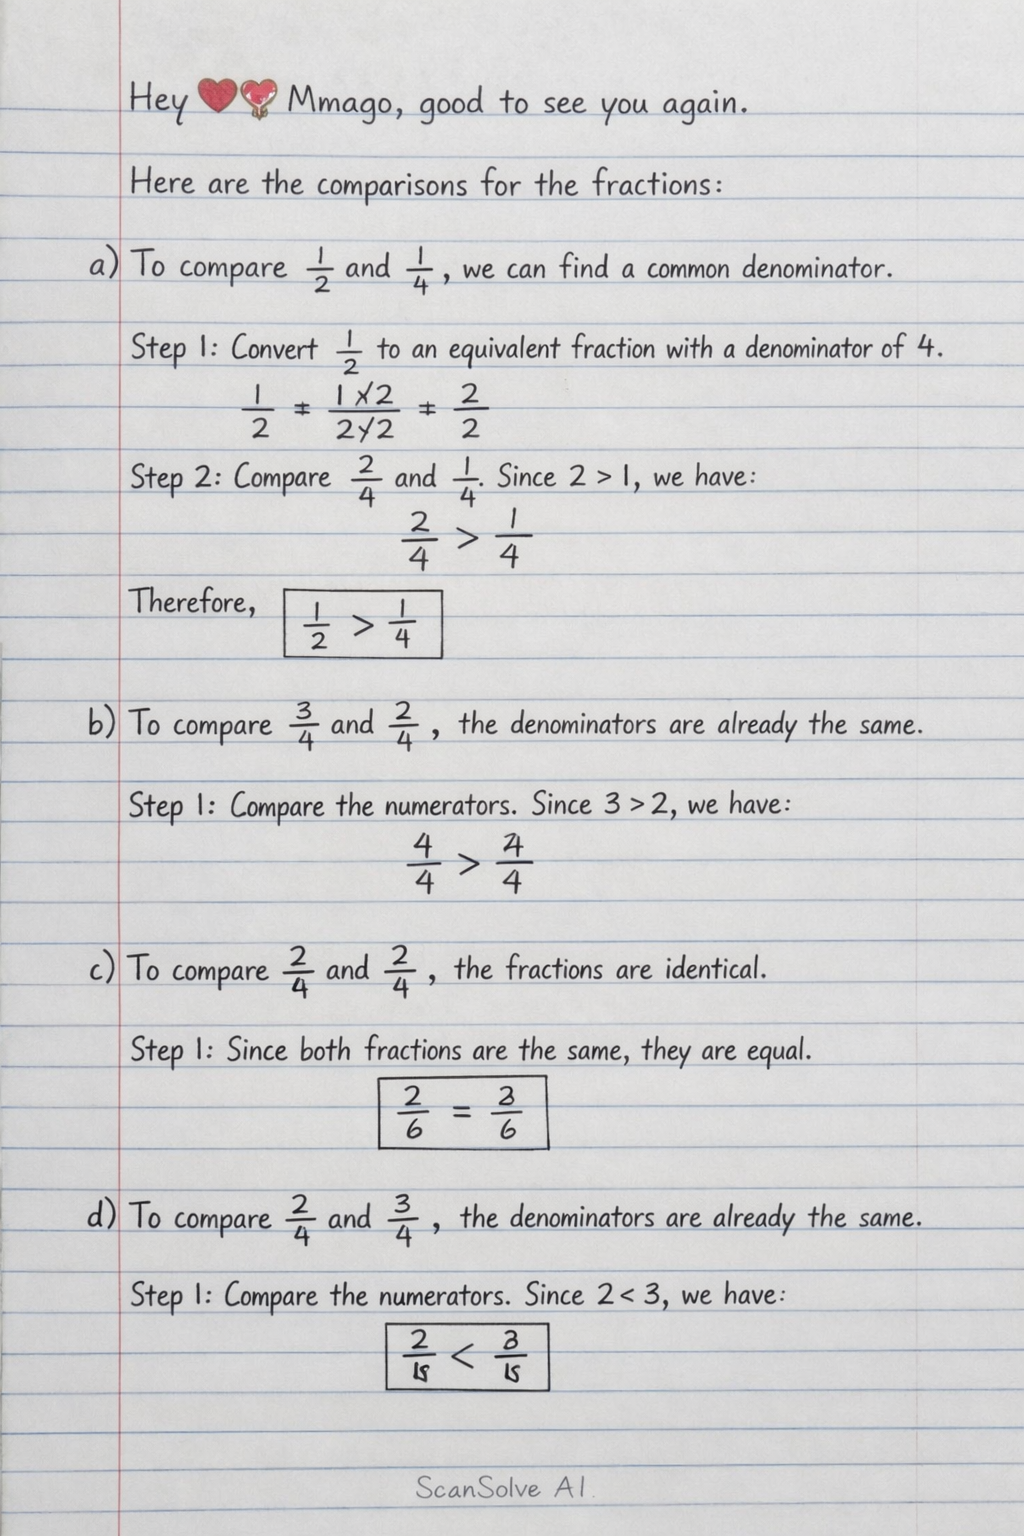 Hey ❤️💝 Mmago, good to see you again.
Here are the comparisons for the fractions:
a) To compare 1/2 and 1/4, we can find a common denominator.
Step 1: Convert 1/2 to an equivalent fraction with a denominator of 4.
1/2 ≠ 1×2/2×2 ≠ 2/2
Step 2: Compare 2/4 and 1/4. Since 2 > 1, we have:
2/4 > 1/4
Therefore, 1/2 > 1/4
b) To compare 3/4 and 2/4, the denominators are already the same.
Step 1: Compare the numerators. Since 3 > 2, we have:
4/4 > 4/4
c) To compare 2/4 and 2/4, the fractions are identical.
Step 1: Since both fractions are the same, they are equal.
2/6 = 3/6
d) To compare 2/4 and 3/4, the denominators are already the same.
Step 1: Compare the numerators. Since 2 < 3, we have:
2/15 < 3/15
ScanSolve AI.